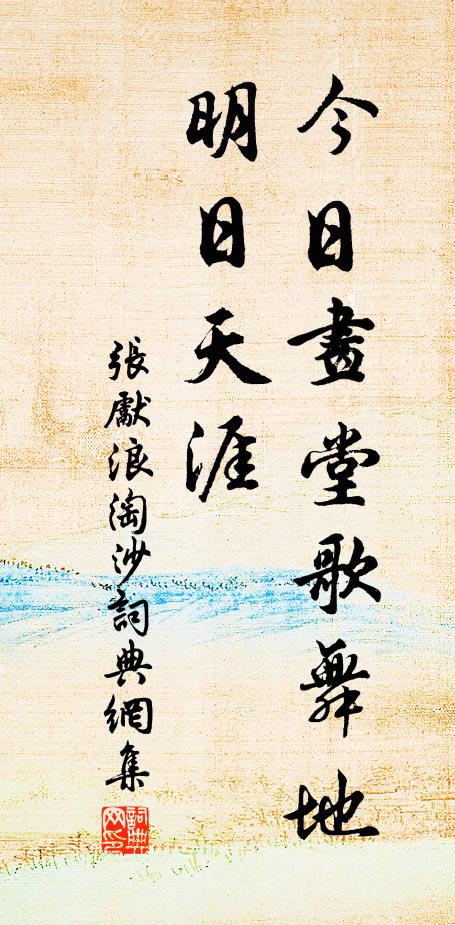 今日畫堂歌舞地
明日天涯
張獻浪淘沙詞典網集
詞典網印